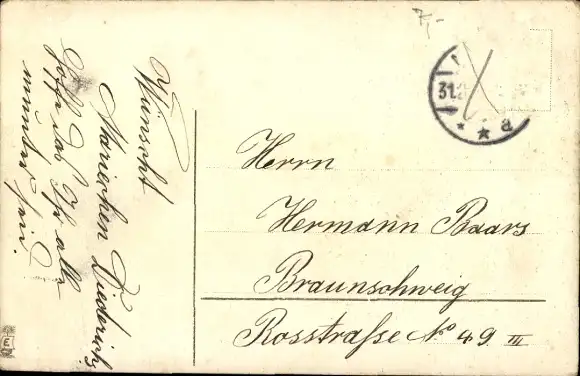 Wünscht
Mariechen Diederichs
Hoffe das Ihr alle
munter seid.
31.
a
Herrn
Hermann Baars
Braunschweig
Rosstraße No 49 III
E